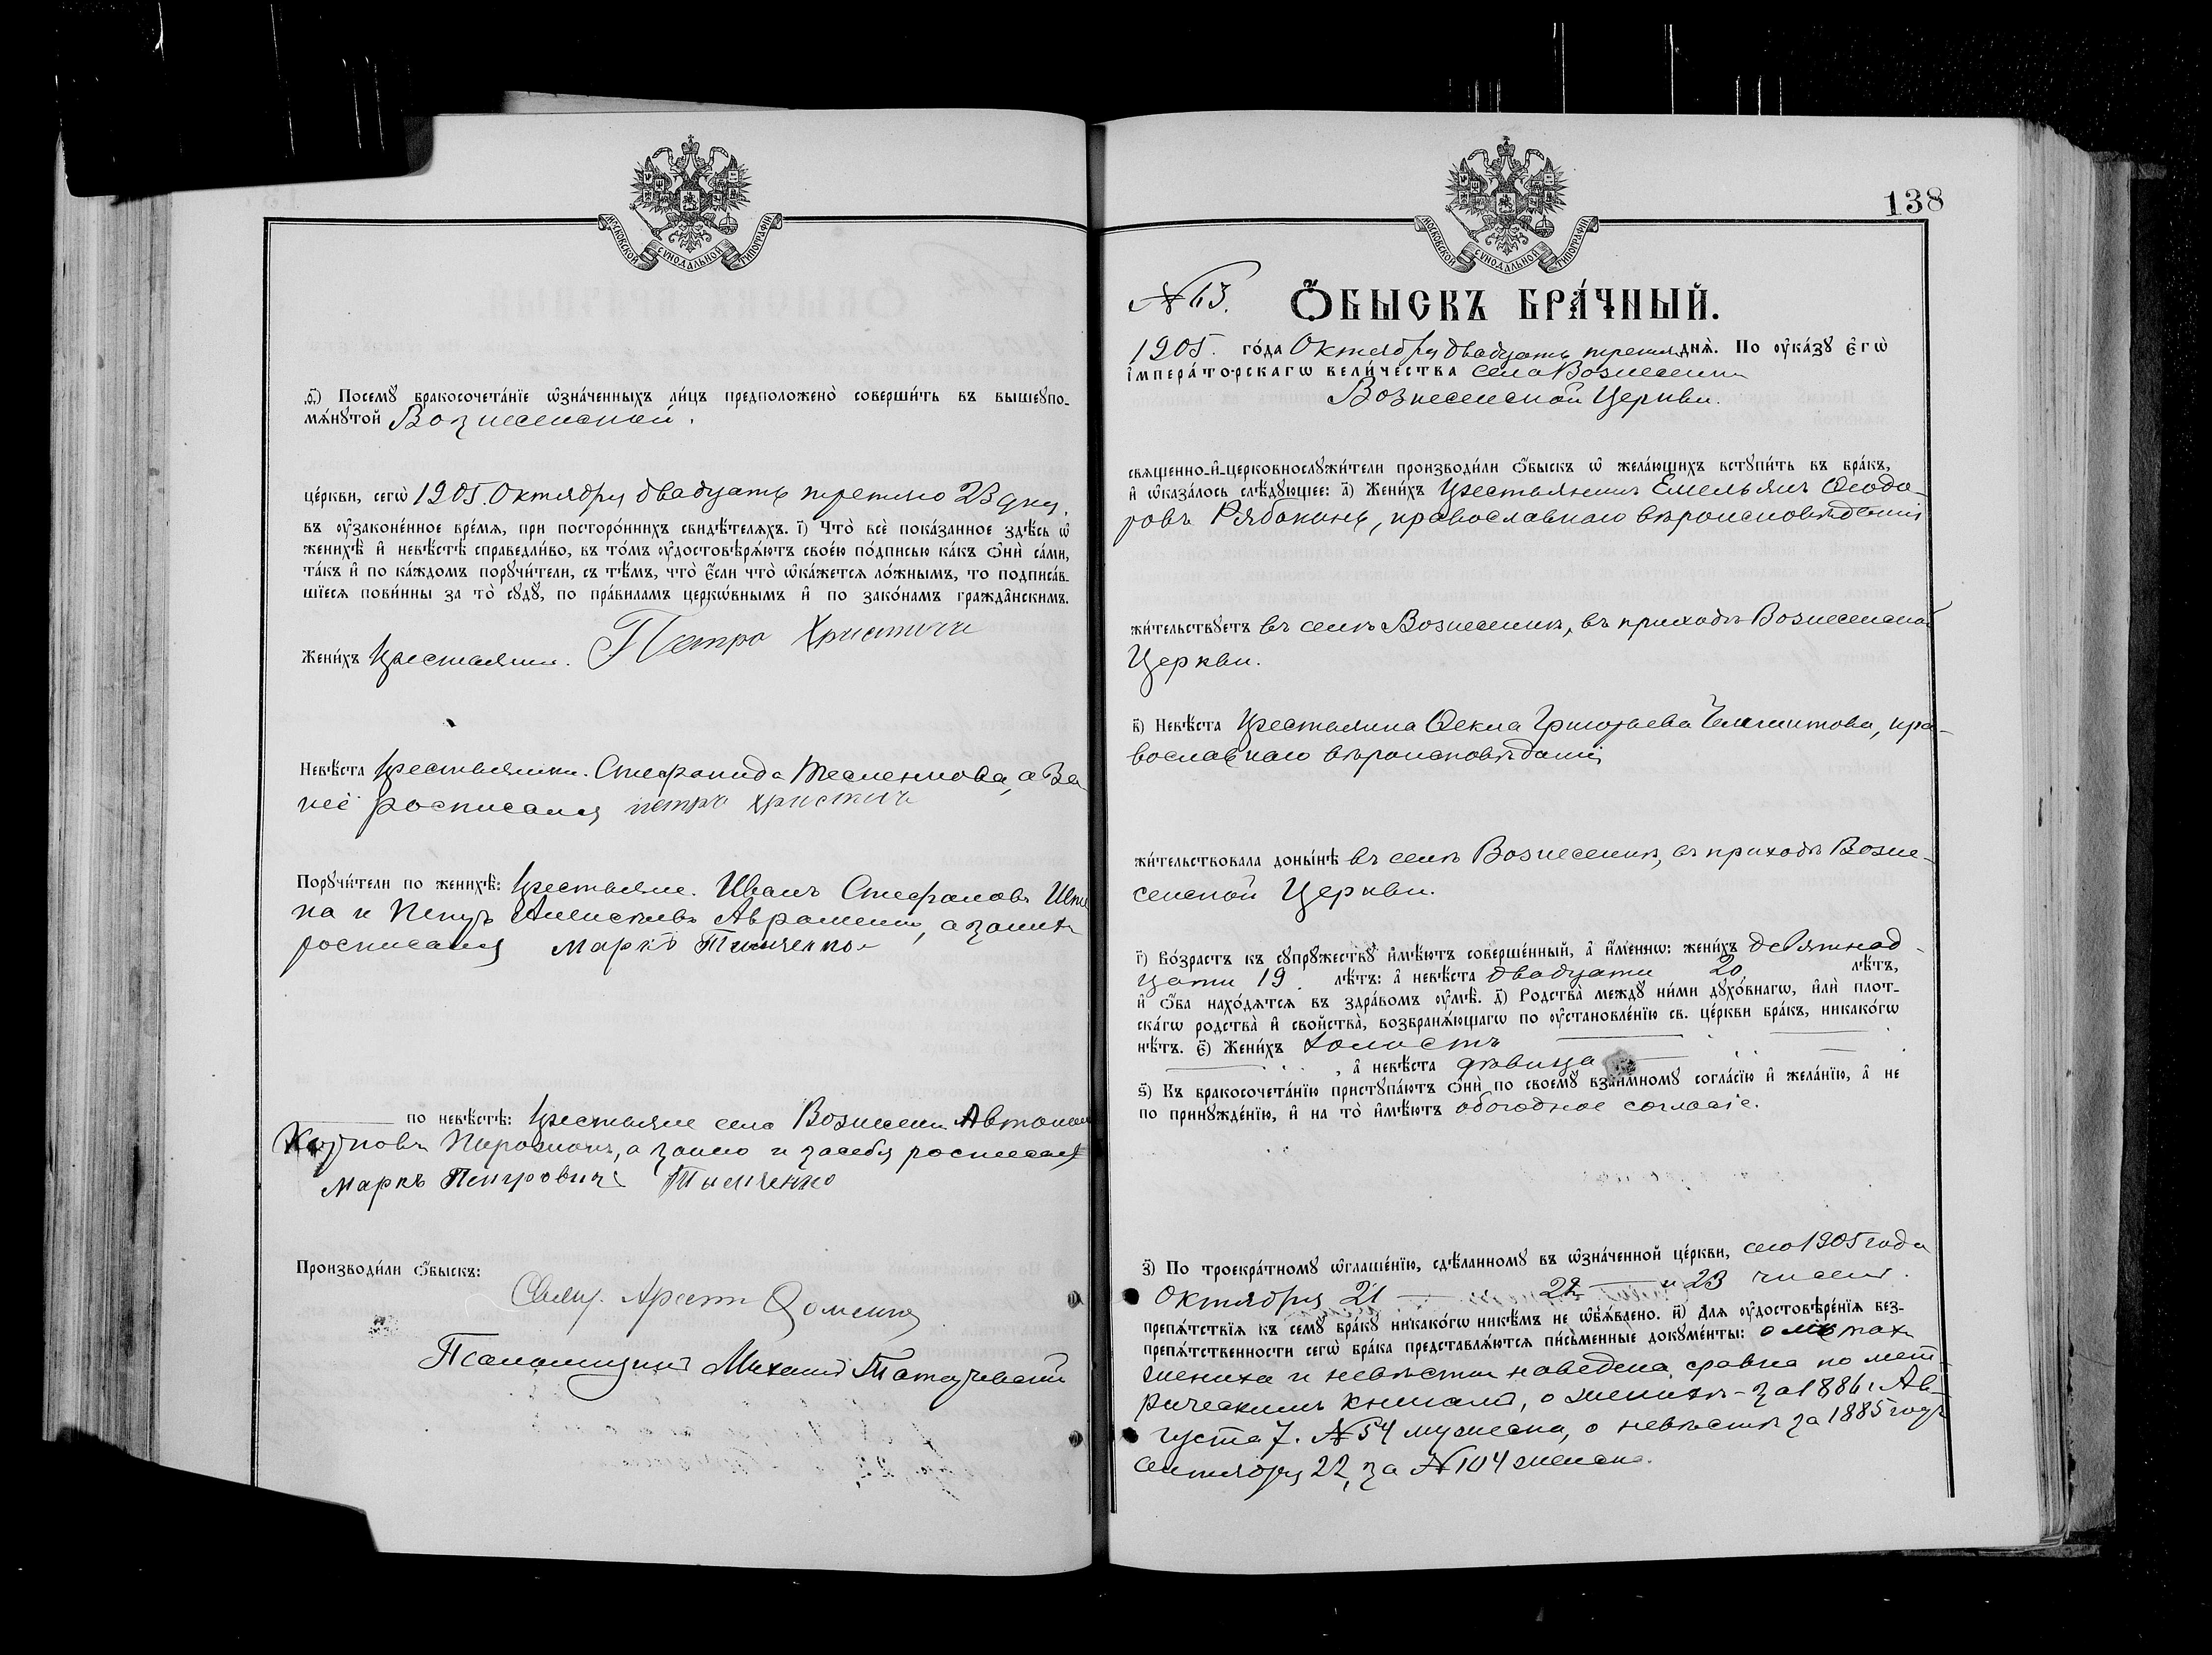 МОСКОВСКОЙ СУНОДАЛЬНОЙ ТИПОГРАФІИ
ѳ҃) Посемꙋ̀ бракосочета́нїе ѡ҆зна́ченныхъ ли́цъ предположено̀ соверши́ть въ вышеꙋпо-
мѧ́нꙋтой Вознесенской.
це́ркви, сегѡ̀ 1905. Октября двадцать третьяго 23 дня.
въ ᲂу҆законе́нное вре́мѧ, при посторо́ннихъ свидѣ́телѧхъ. і҃) Что̀ всѐ пока́занное здѣ́сь ѡ҆
женихѣ̀ и҆ невѣ́стѣ справедли́во, въ то́мъ ᲂу҆достовѣрѧ́ютъ свое́ю по́дписью ка́къ ѻ҆нѝ са́ми,
та́къ и҆ по ка́ждомъ порꙋчи́тели, съ тѣ́мъ, что̀ є҆́сли что̀ ѡ҆ка́жетсѧ ло́жнымъ, то подписа́в-
шїесѧ пови́нны за то̀ сꙋдꙋ̀, по пра́виламъ церкѡ́внымъ и҆ по зако́намъ гражда̂нскимъ.
Жени́хъ Крестьянин. Петро Христичи
Невѣ́ста Крестьянка. Стефанида Тесленкова, а за
нее росписался петро христич
Порꙋчи́тели по женихѣ̀: Крестьяне. Иванъ Стефановъ
на и Петръ Алексѣевъ Авраменко, а за них
росписался Марко Тимченко
по невѣ́стѣ: Крестьяне села Вознесенк Автоном
Карповъ Пирожокъ, а за него и за себя росписался
Маркъ Петровичъ Тимченко
Производи́ли ѻ҆́быскъ:
Свящ.
Псаломщикъ Михаилъ
138
МОСКОВСКОЙ СУНОДАЛЬНОЙ ТИПОГРАФІИ
№ 63.
Ѻ҆́БЫСКЪ БРА́ЧНЫЙ.
1905. го́да Октября двадцать третья днѧ̀. По ᲂу҆ка́зꙋ є҆гѡ̀
і҆мпера́торскагѡ вели́чества села Вознесенки
Вознесенской Церкви.
свѧщенно-и҆-церковнослꙋжи́тели производи́ли ѻ҆́быскъ ѡ҆ жела́ющихъ встꙋпи́ть въ бра́къ,
и҆ ѡ҆каза́лось слѣ́дꙋющее: а҃) Жени́хъ Крестьянинъ Емельянъ Ѳеодо-
ровъ Рябоконь, православнаго вѣроисповѣданія
жи́тельствꙋетъ въ селѣ Вознесенкѣ, въ приходѣ Вознесенской
Церкви.
в҃) Невѣ́ста Крестьянка Ѳекла Григорьева православнаго, пра-
вославнаго вѣроисповѣданія
жи́тельствовала доны́нѣ въ селѣ Вознесенкѣ, въ приходѣ Возне-
сенской Церкви.
г҃) Во́зрастъ къ сꙋпрꙋ́жествꙋ и҆мѣ́ютъ соверше́нный, а҆ и҆́меннѡ: жени́хъ девятнад-
цати 19 лѣ́тъ: а҆ невѣ́ста двадцати 20 лѣ́тъ,
и҆ ѻ҆́ба нахо́дѧтсѧ въ здра́вомъ ᲂу҆мѣ̀. д҃) Родства̀ междꙋ̀ ни́ми дꙋхо́внагѡ, и҆лѝ плот-
ска́гѡ родства̀ и҆ свойства̀, возбранѧ́ющагѡ по ᲂу҆становле́нїю св. це́ркви бра́къ, никако́гѡ
нѣ́тъ. є҃) Жени́хъ холостъ
, а҆ невѣ́ста дѣвица
ѕ҃) Къ бракосочета́нїю пристꙋпа́ютъ ѻ҆нѝ по своемꙋ̀ взаи́мномꙋ согла́сїю и҆ жела́нїю, а҆ не
по принꙋжде́нїю, и҆ на то̀ и҆мѣ́ютъ обоюдное согласіе.
з҃) По троекра́тномꙋ ѡ҆глаше́нїю, сдѣ́ланномꙋ въ ѡ҆зна́ченной це́ркви, сего 1905 года
Октября 21 22 и 23 числъ.
препѧ́тствїѧ къ семꙋ̀ бра́кꙋ никако́гѡ никѣ́мъ не ѡ҆б̾ѧ́влено. и҃) Длѧ ᲂу҆достовѣре́нїѧ без-
препѧ́тственности сегѡ̀ бра́ка представлѧ́ютсѧ пи́сьменные докꙋме́нты: о лѣтахъ
жениха и невѣсты наведена справка по мет-
рическимъ книгамъ, о женихѣ - за 1886 г. Ав-
густа 7. № 54 мужеска, о невѣстѣ за 1885 годъ
Сентября 22, за № 104 женска.